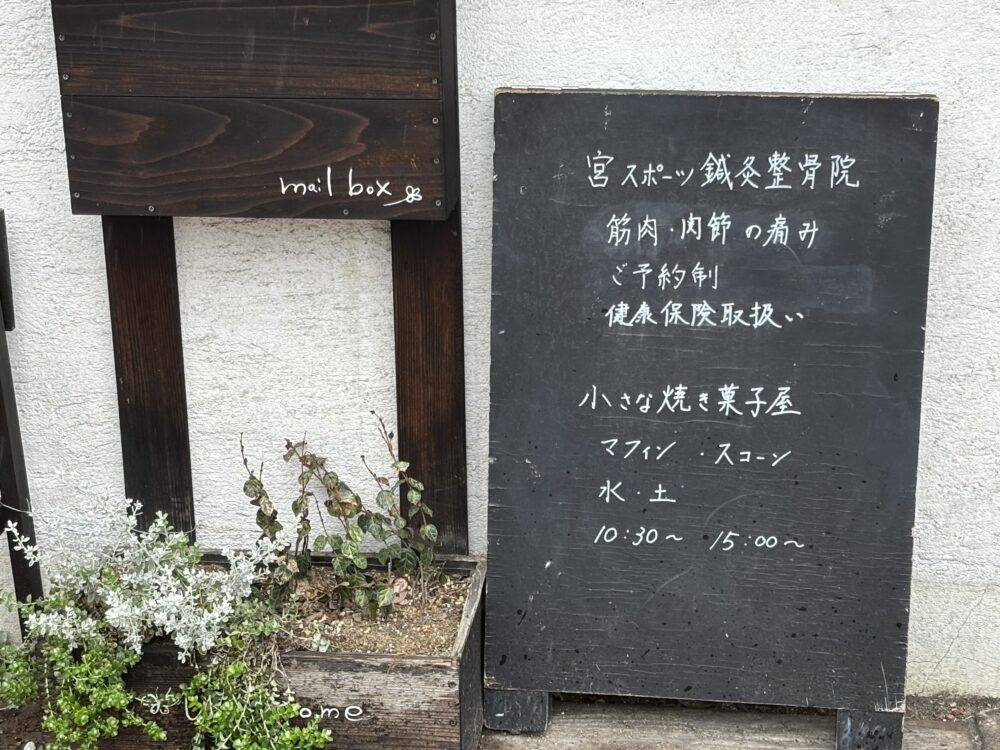 mail box
宮スポーツ鍼灸整骨院
筋肉・関節の痛み
ご予約制
健康保険取扱い
小さな焼き菓子屋
マフィン・スコーン
水・土
10:30〜 15:00〜